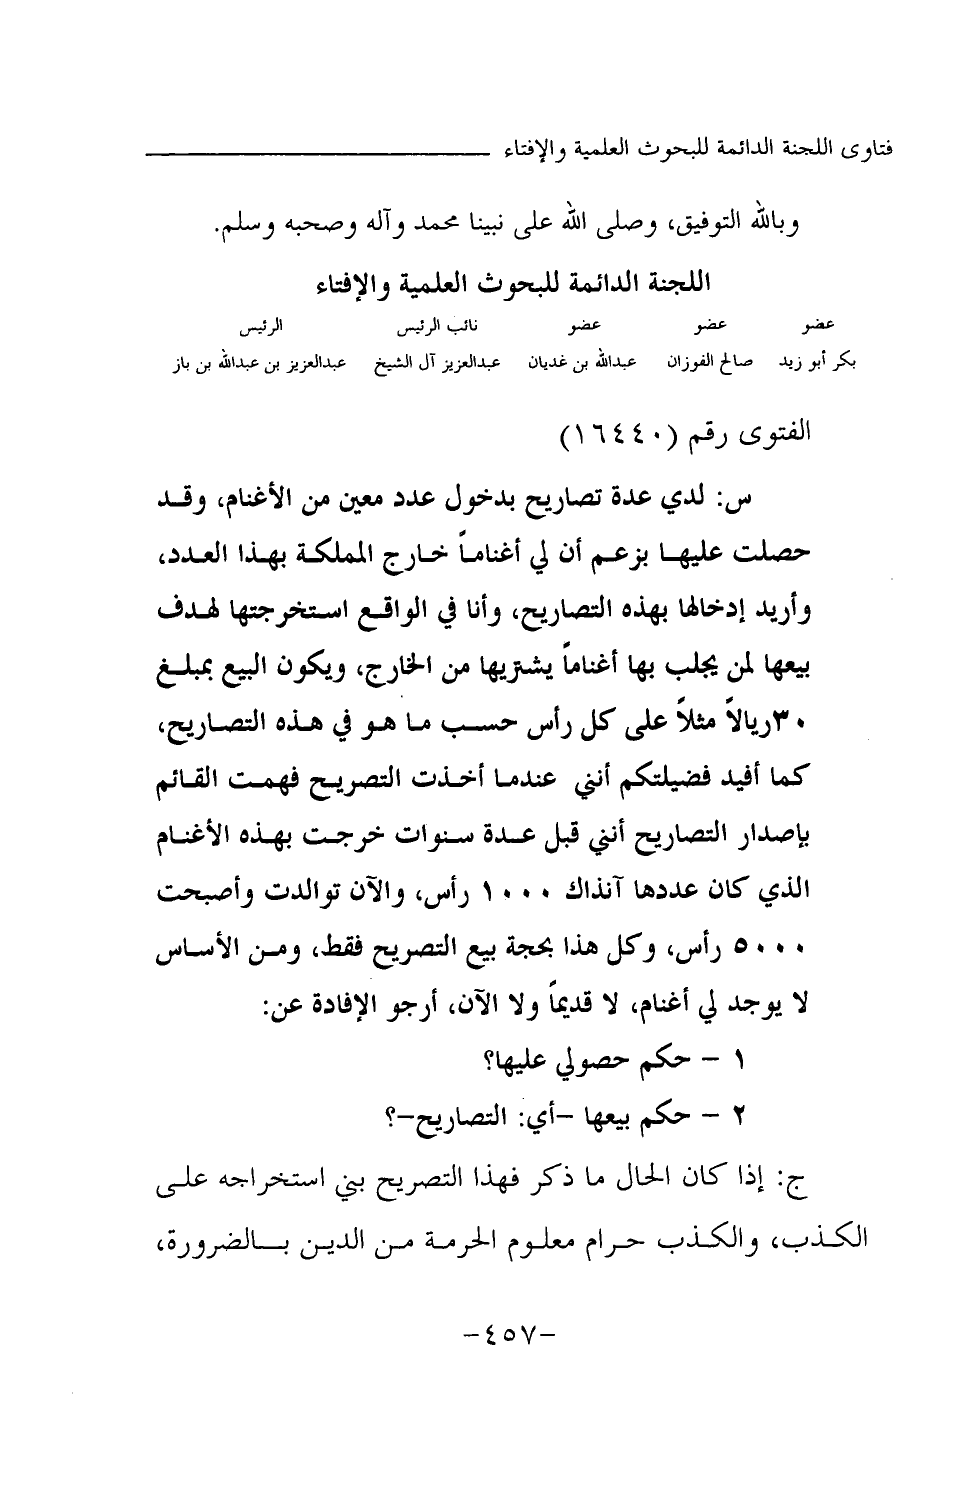 فتاوى اللجنة الدائمة للبحوث العلمية والإفتاء
وبالله التوفيق، وصلى الله على نبينا محمد وآله وصحبه وسلم.
اللجنة الدائمة للبحوث العلمية والإفتاء
عضو عضو عضو نائب الرئيس الرئيس
بكر أبو زيد صالح الفوزان عبدالله بن غديان عبدالعزيز آل الشيخ عبدالعزيز بن عبدالله بن باز
الفتوى رقم (١٦٤٤٠)
س: لدي عدة تصاريح بدخول عدد معين من الأغنام، وقد
حصلت عليها بزعم أن لي أغناماً خارج المملكة بهذا العدد،
وأريد إدخالها بهذه التصاريح، وأنا في الواقع استخرجتها لهدف
بيعها لمن يجلب بها أغناماً يشتريها من الخارج، ويكون البيع بمبلغ
٣٠ريالاً مثلاً على كل رأس حسب ما هو في هذه التصاريح،
كما أفيد فضيلتكم أنني عندما أخذت التصريح فهمت القائم
بإصدار التصاريح أنني قبل عدة سنوات خرجت بهذه الأغنام
الذي كان عددها آنذاك ١٠٠٠ رأس، والآن توالدت وأصبحت
٥٠٠٠ رأس، وكل هذا بحجة بيع التصريح فقط، ومن الأساس
لا يوجد لي أغنام، لا قديماً ولا الآن، أرجو الإفادة عن:
١ - حكم حصولي عليها؟
٢ - حكم بيعها -أي: التصاريح-؟
ج: إذا كان الحال ما ذكر فهذا التصريح بني استخراجه على
الكذب، والكذب حرام معلوم الحرمة من الدين بالضرورة،
-٤٥٧-